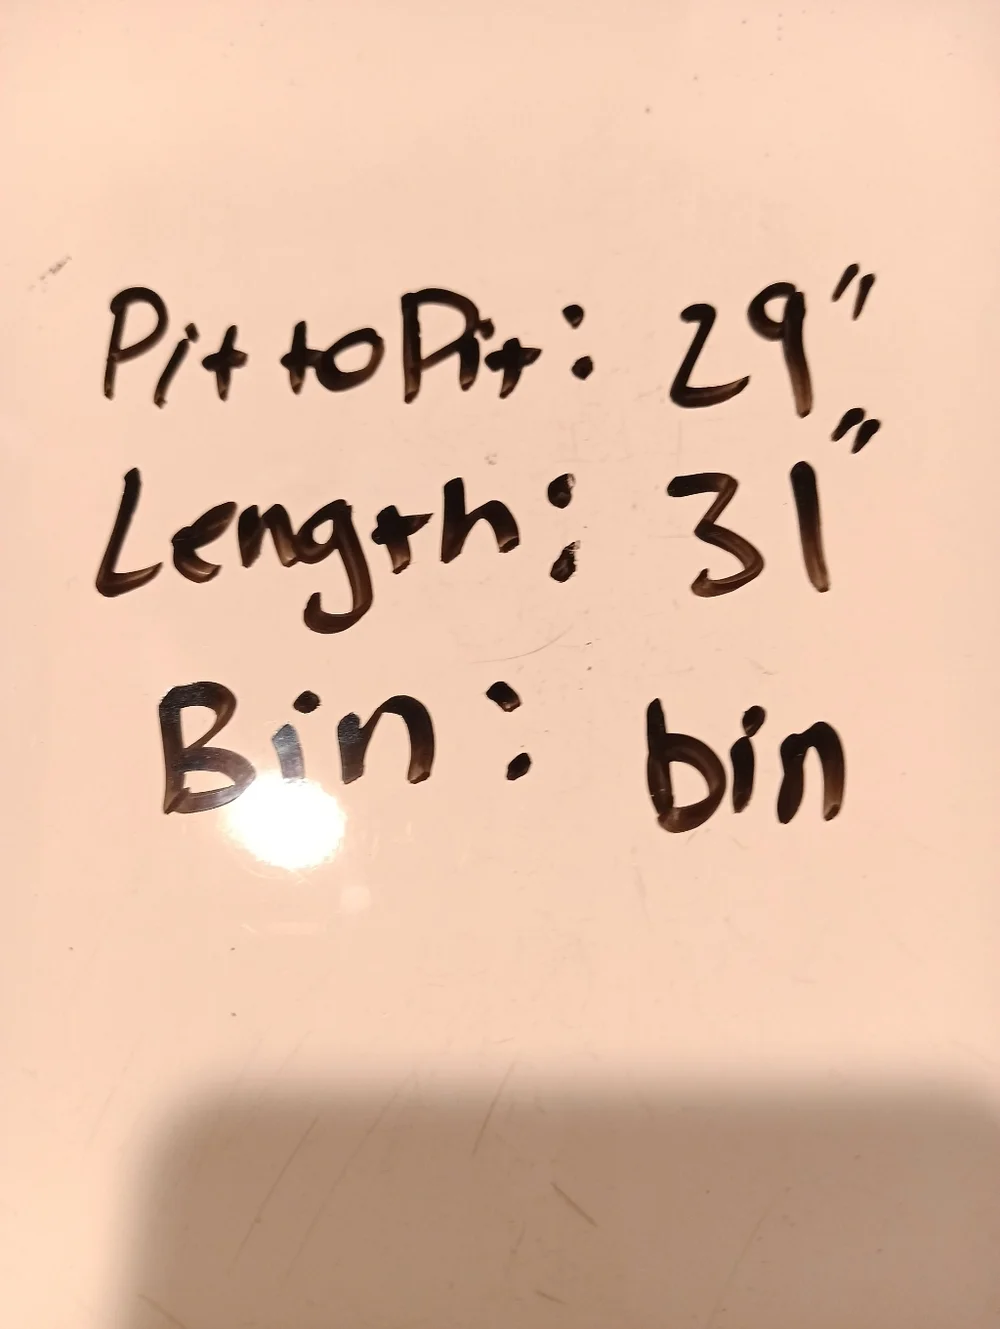 Pit to Pit: 29"
Length: 31"
Bin: bin